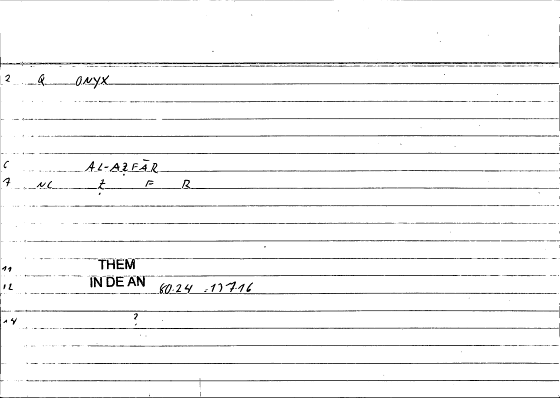 2 Q ONYX
6 AL-AẒFĀR
7 NC Ẓ F R
11 THEM
12 IN DE AN 60.24 :177.16
14 ?